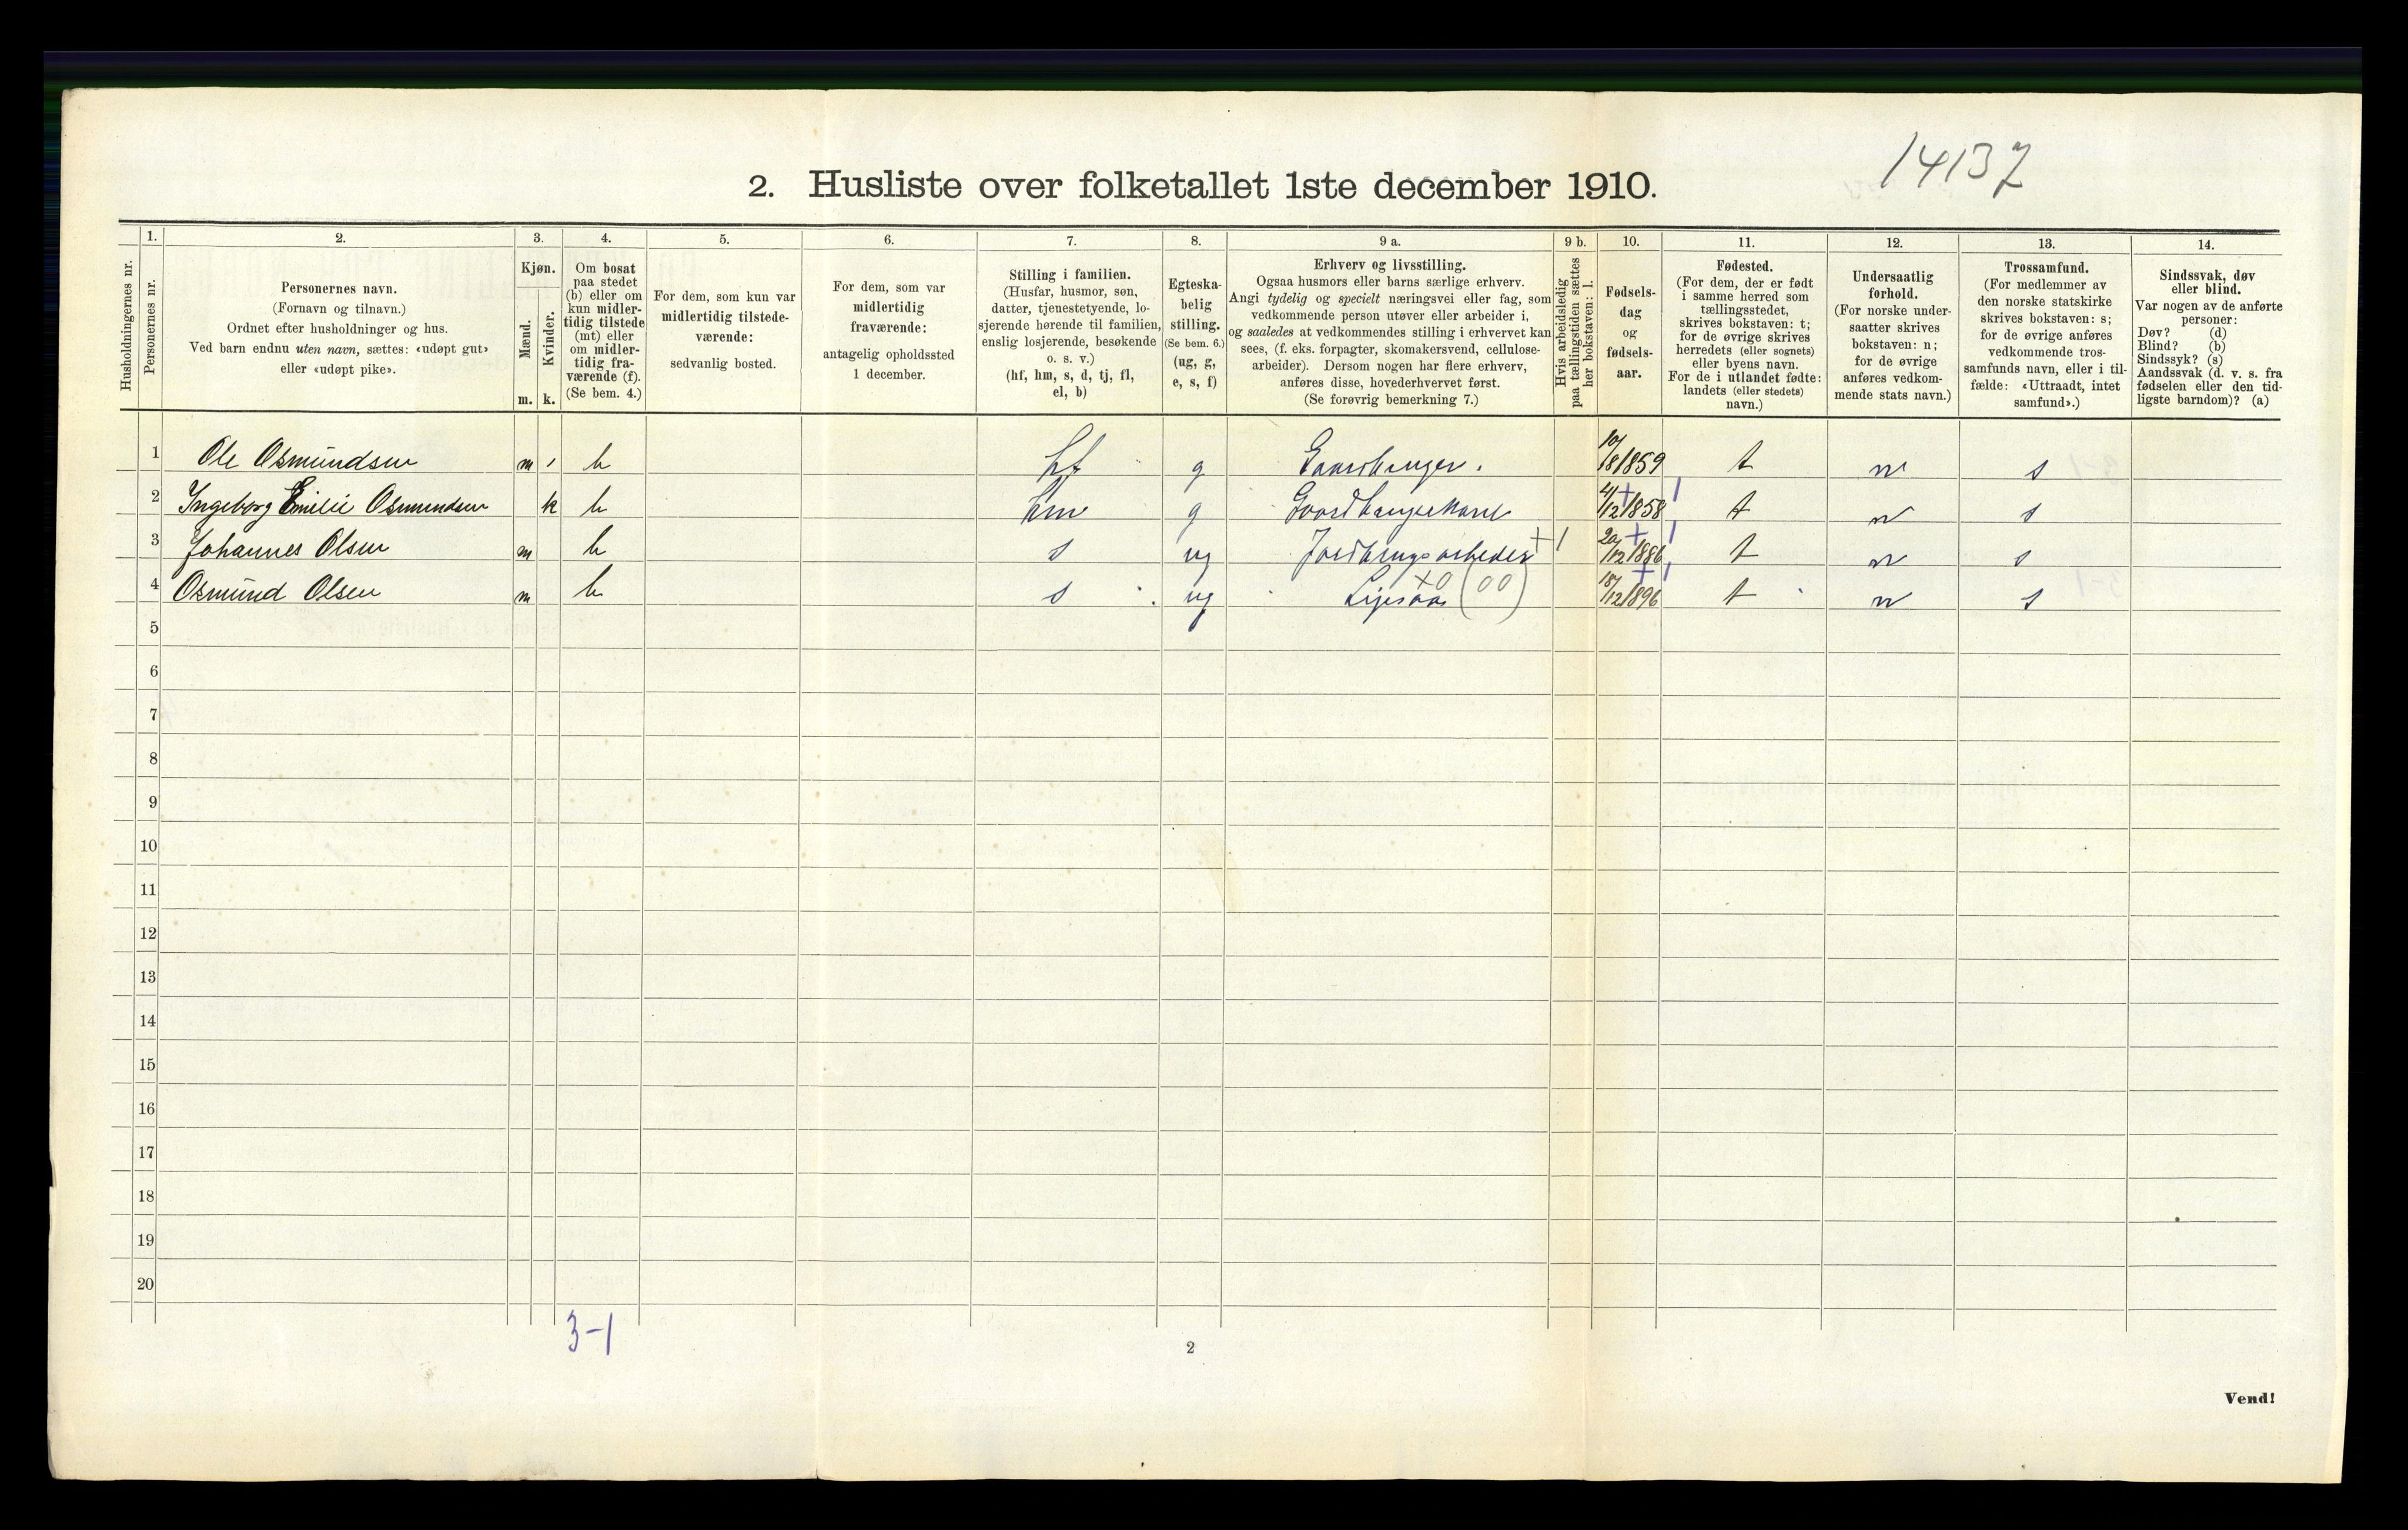 14137
2. Husliste over folketallet 1ste december 1910.
Husholdningernes nr.
1.
Personernes nr.
2.
Personernes navn.
(Fornavn og tilnavn.)
Ordnet efter husholdninger og hus.
Ved barn endnu uten navn, sættes: «udøpt gut»
eller «udøpt pike».
3.
Kjøn.
Mænd.
Kvinder.
m. k.
4.
Om bosat
paa stedet
(b) eller om
kun midler-
tidig tilstede
(mt) eller
om midler-
tidig fra-
værende (f).
(Se bem. 4.)
5.
For dem, som kun var
midlertidig tilstede-
værende:
sedvanlig bosted.
6.
For dem, som var
midlertidig
fraværende:
antagelig opholdssted
1 december.
7.
Stilling i familien.
(Husfar, husmor, søn,
datter, tjenestetyende, lo-
sjerende hørende til familien,
enslig losjerende, besøkende
o. s. v.)
(hf, hm, s, d, tj, fl,
el, b)
8.
Egteska-
belig
stilling.
(Se bem. 6.)
(ug, g,
e, s, f)
9 a.
Erhverv og livsstilling.
Ogsaa husmors eller barns særlige erhverv.
Angi tydelig og specielt næringsvei eller fag, som
vedkommende person utøver eller arbeider i,
og saaledes at vedkommendes stilling i erhvervet kan
sees, (f. eks. forpagter, skomakersvend, cellulose-
arbeider). Dersom nogen har flere erhverv,
anføres disse, hovederhvervet først.
(Se forøvrig bemerkning 7.)
9 b.
Hvis arbeidsledig
paa tællingstiden sættes
her bokstaven: l.
10.
Fødsels-
dag
og
fødsels-
aar.
11.
Fødested.
(For dem, der er født
i samme herred som
tællingsstedet,
skrives bokstaven: t;
for de øvrige skrives
herredets (eller sognets)
eller byens navn.
For de i utlandet fødte:
landets (eller stedets)
navn.)
12.
Undersaatlig
forhold.
(For norske under-
saatter skrives
bokstaven: n;
for de øvrige
anføres vedkom-
mende stats navn.)
13.
Trossamfund.
(For medlemmer av
den norske statskirke
skrives bokstaven: s;
for de øvrige anføres
vedkommende tros-
samfunds navn, eller i til-
fælde: «Uttraadt, intet
samfund».)
14.
Sindssvak, døv
eller blind.
Var nogen av de anførte
personer:
Døv? (d)
Blind? (b)
Sindssyk? (s)
Aandssvak (d. v. s. fra
fødselen eller den tid-
ligste barndom)? (a)
1 Ole Osmundsen m b hf g Gaardbruger. 10/8 1859 t n s
2 Ingeborg Emilie Osmundsen k b hm g 4/12 1858 t n s
3 Johannes Olsen m b s ug Jordbrugsarbeder +1 20/12 1886 t n s
4 Osmund Olsen m b s ug X0 (00) 18/12 1896 t n s
5
6
7
8
9
10
11
12
13
14
15
16
17
18
19
20
3-1
2
Vend!